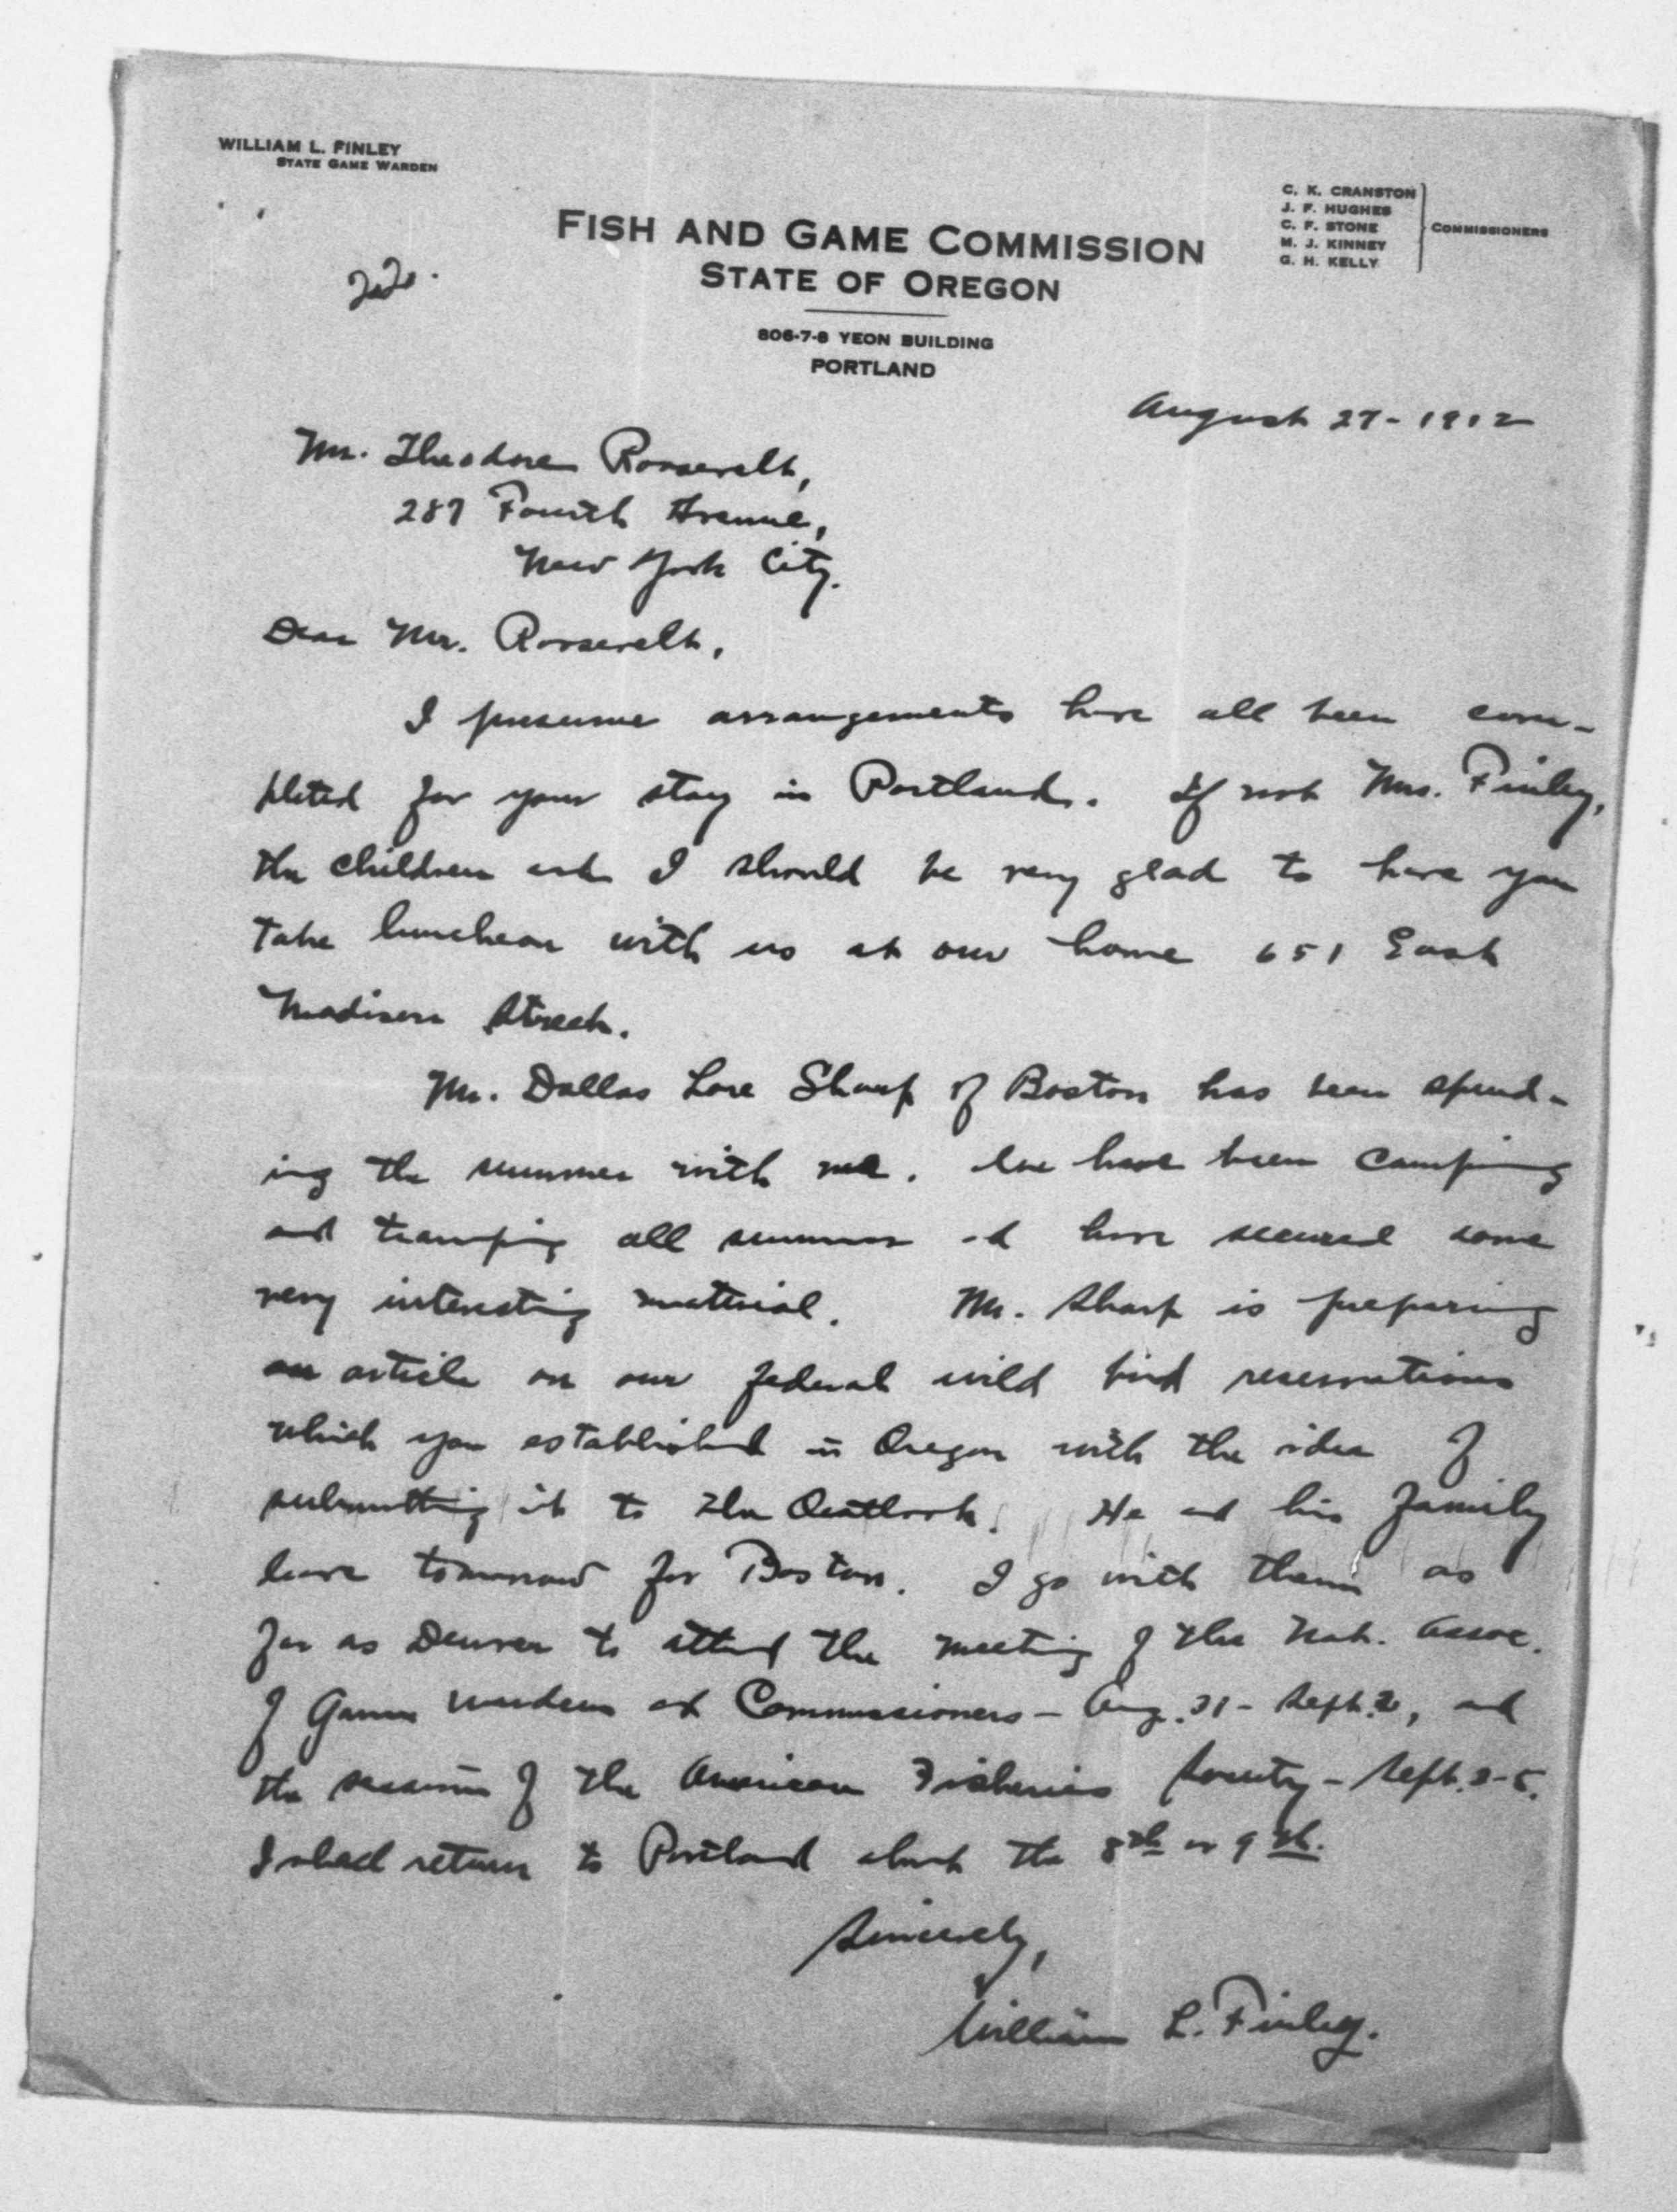 WILLIAM L. FINLEY
STATE GAME WARDEN
C. K. CRANSTON
J. F. HUGHES
C. F. STONE
M. J. KINNEY
G. H. KELLY
COMMISSIONERS
FISH AND GAME COMMISSION
STATE OF OREGON
806-7-8 YEON BUILDING
PORTLAND
August 27-1912
Mr. Theodore Roosevelt,
287 Fourth Avenue,
New York City.
Dear Mr. Roosevelt,
I presume arrangements have all been com-
pleted for your stay in Portland. If not Mrs. Finley,
the children and I should be very glad to have you
take luncheon with us at our home 651 East
Madison Street.
Mr. Dallas Lore Sharp of Boston has been spend-
ing the summer with me. We have been camping
and tramping all summer and have secured some
very interesting material. Mr. Sharp is preparing
an article on our federal wild bird reservations
which you established in Oregon with the idea of
submitting it to The Outlook. He and his family
leave tomorrow for Boston. I go with them as
far as Denver to attend the meeting of the Nat. Assoc.
of Game Wardens and Commissioners - Aug. 31 - Sept. , and
the session of the American Fisheries Society - Sept. 3-5.
I shall return to Portland about the 8th or 9th.
Sincerely,
William L. Finley.